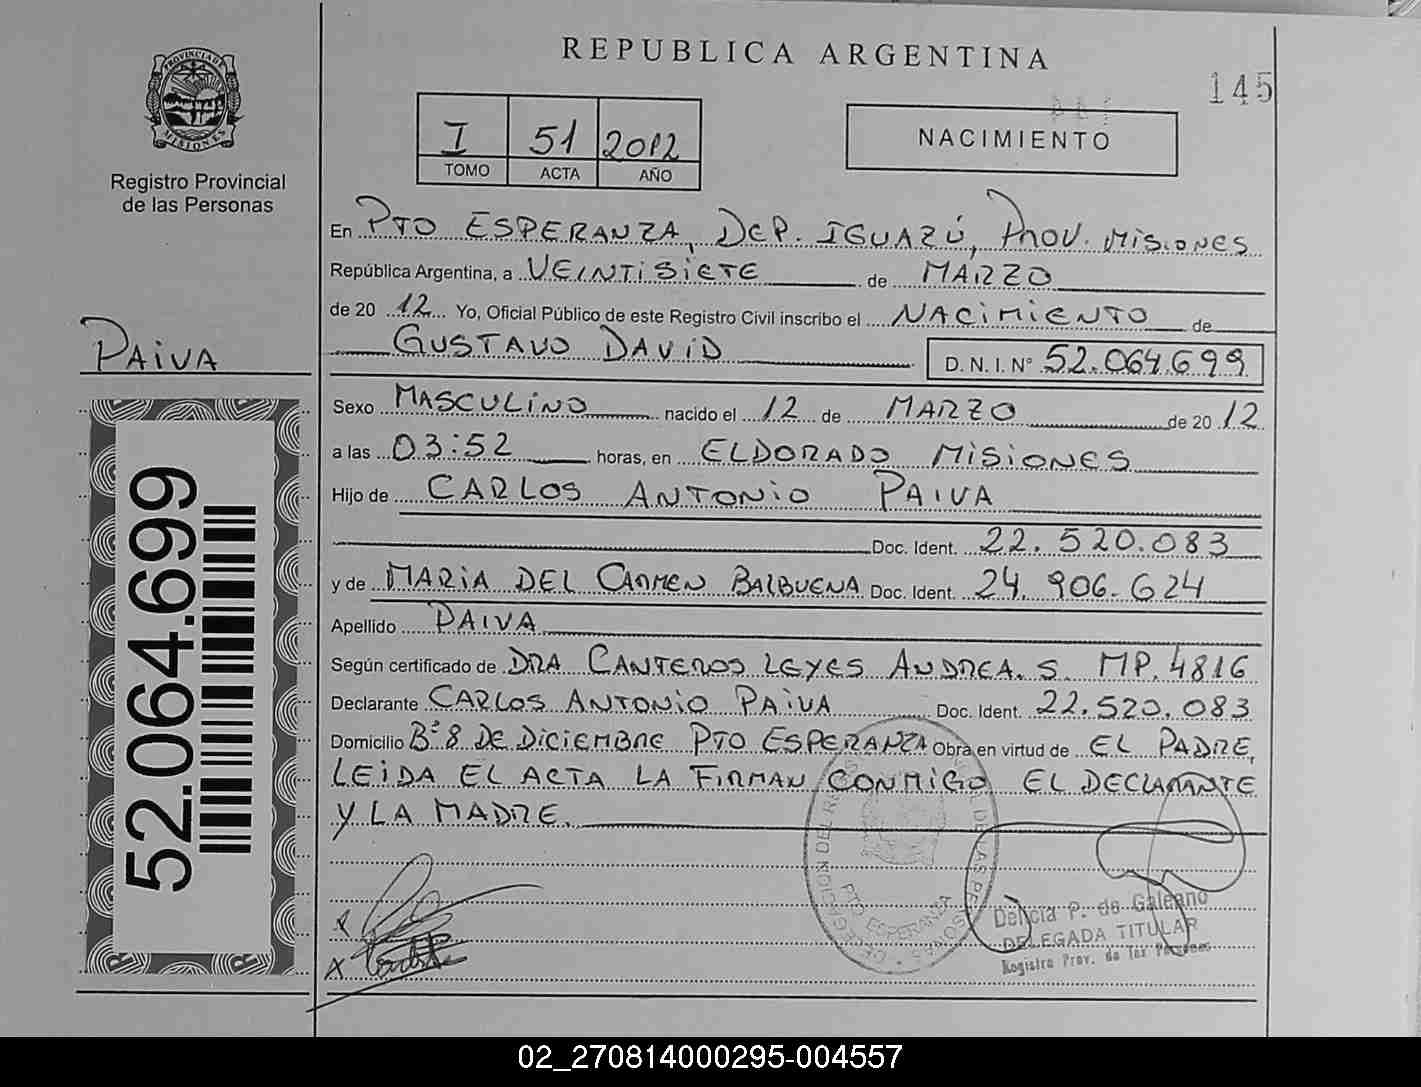 REPUBLICA ARGENTINA
145
PROVINCIA DE MISIONES
Registro Provincial
de las Personas
I 51 2012
TOMO ACTA AÑO
NACIMIENTO
En PTO ESPERANZA, DEP. IGUAZÚ, PROV. MISIONES
República Argentina, a VEINTISIETE de MARZO
de 20 12 Yo, Oficial Público de este Registro Civil inscribo el NACIMIENTO de
GUSTAVO DAVID D.N.I. Nº 52.064.699
PAIVA
Sexo MASCULINO nacido el 12 de MARZO de 20 12
a las 03:52 horas, en ELDORADO MISIONES
Hijo de CARLOS ANTONIO PAIVA
Doc. Ident. 22.520.083
y de MARIA DEL CARMEN BALBUENA Doc. Ident. 24.906.624
Apellido PAIVA
Según certificado de DRA CANTEROS LEYES ANDREA. S. MP. 4816
Declarante CARLOS ANTONIO PAIVA Doc. Ident. 22.520.083
Domicilio Bº 8 DE DICIEMBRE PTO ESPERANZA Obra en virtud de EL PADRE,
LEIDA EL ACTA LA FIRMAN CONMIGO EL DECLARANTE
Y LA MADRE.
52.064.699
DELEGACION DEL
PTO ESPERANZA
Delicia P. de Galeano
DELEGADA TITULAR
Registro Prov. de las Personas
02_270814000295-004557